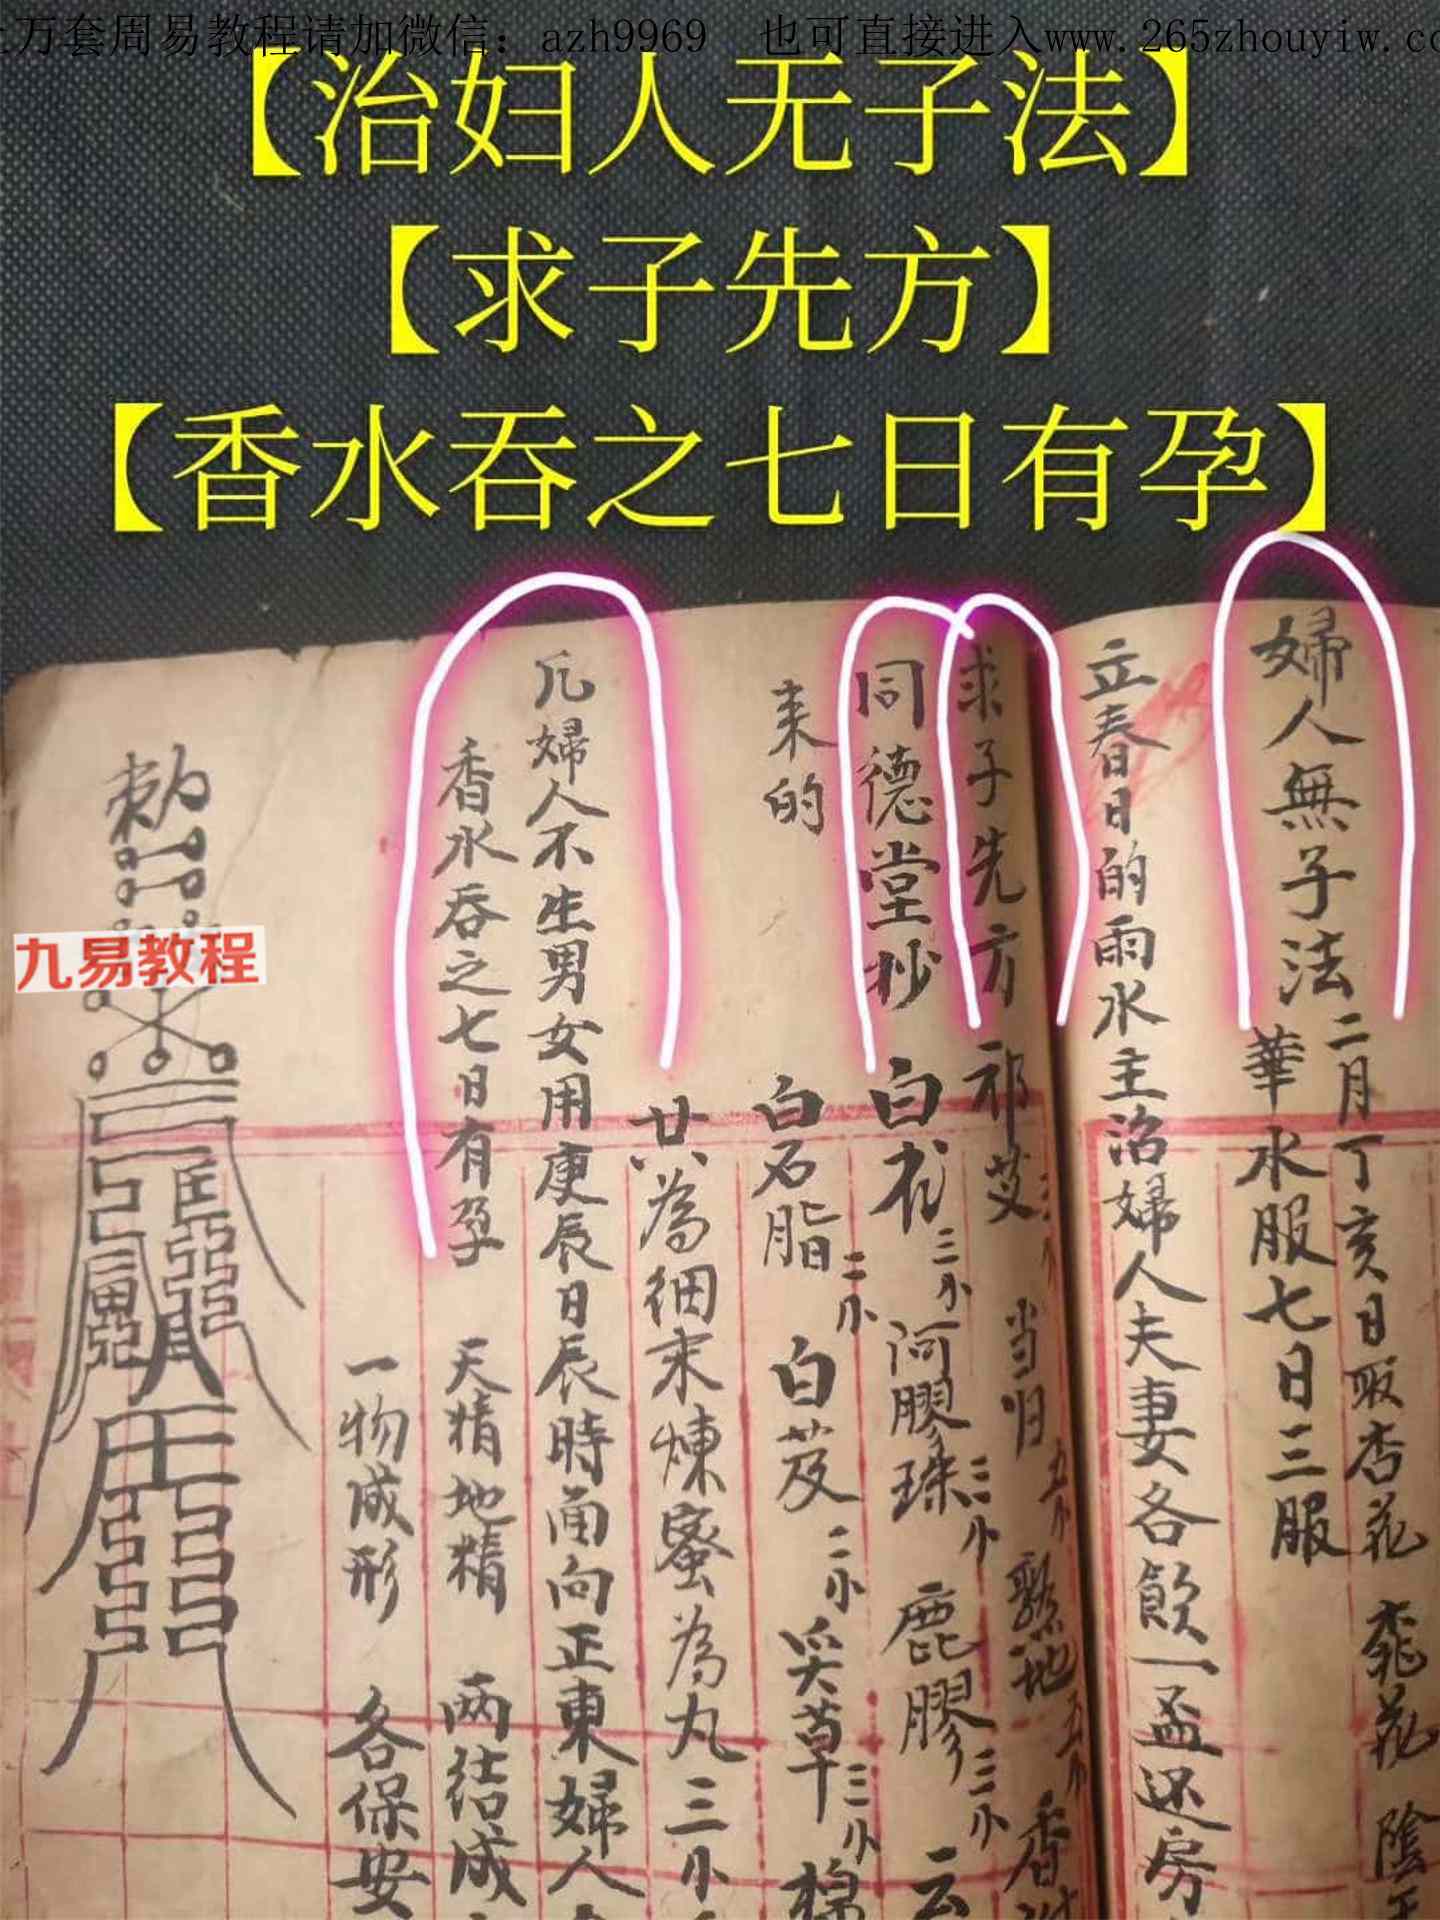 万套周易教程请加微信：azh9969 也可直接进入www.265zhouyiw.co
【治妇人无子法】
【求子先方】
【香水吞之七日有孕】
婦人無子法
二月丁亥日取杏花 桃花 陰
華水服七日三服
立春日的雨水主治婦人夫妻各飲一盃还房
求子先方 祁艾 当归 熟地 香
同德堂抄 白术 三小 阿膠珠 三小 鹿膠 三小 云
来的 白石脂 二小 白芨 二小 炙草 三小 棉
共為细末煉蜜為丸三小
凡婦人不生男女用庚辰日辰時面向正東婦人
香水吞之七日有孕 天精地精 两结成
一物成形 各保安
敕
九易教程